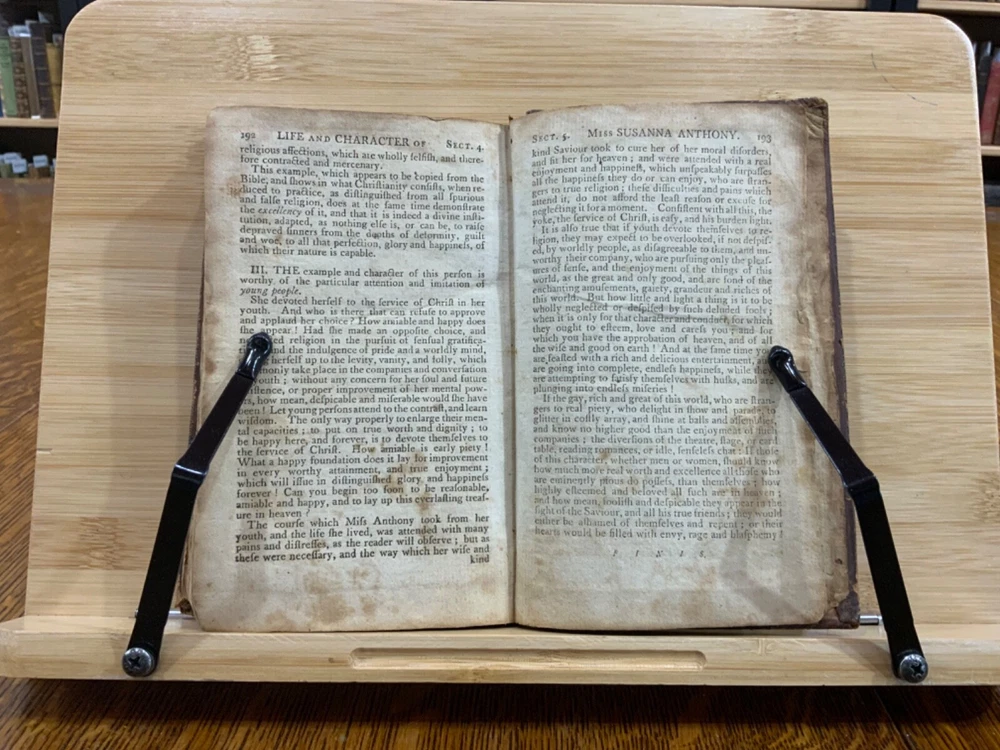 192 LIFE AND CHARACTER OF SECT. 4.
religious affections, which are wholly selfish, and there-
fore contracted and mercenary.
This example, which appears to be copied from the
Bible, and shows in what Christianity consists, when re-
duced to practice, as distinguished from all spurious
and false religion, does at the same time demonstrate
the excellency of it, and that it is indeed a divine insti-
tution, adapted, as nothing else is, or can be, to raise
depraved sinners from the depths of deformity, guilt
and woe, to all that perfection, glory and happiness, of
which their nature is capable.
III. THE example and character of this person is
worthy of the particular attention and imitation of
young people.
She devoted herself to the service of Christ in her
youth. And who is there that can refuse to approve
and applaud her choice? How amiable and happy does
she appear! Had she made an opposite choice, and
religion in the pursuit of sensual gratifica-
and the indulgence of pride and a worldly mind,
herself up to the levity, vanity, and folly, which
only take place in the companies and conversation
youth; without any concern for her soul and future
or proper improvement of her mental pow-
how mean, despicable and miserable would she have
been! Let young persons attend to the contrast, and learn
wisdom. The only way properly to enlarge their men-
tal capacities; to put on true worth and dignity; to
be happy here, and forever, is to devote themselves to
the service of Christ. How amiable is early piety!
What a happy foundation does it lay for improvement
in every worthy attainment, and true enjoyment;
which will issue in distinguished glory and happiness
forever! Can you begin too soon to be reasonable,
amiable and happy, and to lay up this everlasting treas-
ure in heaven?
The course which Miss Anthony took from her
youth, and the life she lived, was attended with many
pains and distresses, as the reader will observe; but as
these were necessary, and the way which her wise and
kind
SECT. 5. MISS SUSANNA ANTHONY. 193
kind Saviour took to cure her of her moral disorders,
and fit her for heaven; and were attended with a real
enjoyment and happiness, which unspeakably surpasses
all the happiness they do or can enjoy, who are stran-
gers to true religion; these difficulties and pains which
attend it, do not afford the least reason or excuse for
neglecting it for a moment. Consistent with all this, the
yoke, the service of Christ, is easy, and his burden light.
It is also true that if youth devote themselves to re-
ligion, they may expect to be overlooked, if not despis-
ed, by worldly people, as disagreeable to them, and un-
worthy their company, who are pursuing only the pleas-
ures of sense, and the enjoyment of the things of this
world, as the great and only good, and are fond of the
enchanting amusements, gaiety, grandeur and riches of
this world. But how little and light a thing is it to be
wholly neglected or despised by such deluded fools;
when it is only for that character and conduct, for which
they ought to esteem, love and caress you; and for
which you have the approbation of heaven, and of all
the wise and good on earth! And at the same time you
are feasted with a rich and delicious entertainment, and
are going into complete, endless happiness, while they
are attempting to satisfy themselves with husks, and are
plunging into endless miseries!
If the gay, rich and great of this world, who are stran-
gers to real piety, who delight in show and parade, to
glitter in costly array, and shine at balls and assemblies,
and know no higher good than the enjoyment of such
companies; the diversions of the theatre, stage, or card
table, reading romances, or idle, senseless chat: If those
of this character, whether men or women, should know
how much more real worth and excellence all those who
are eminently pious do possess, than themselves; how
highly esteemed and beloved all such are in heaven;
and how mean, foolish and despicable they appear in the
sight of the Saviour, and all his true friends; they would
either be ashamed of themselves and repent; or their
hearts would be filled with envy, rage and blasphemy!
FINIS.